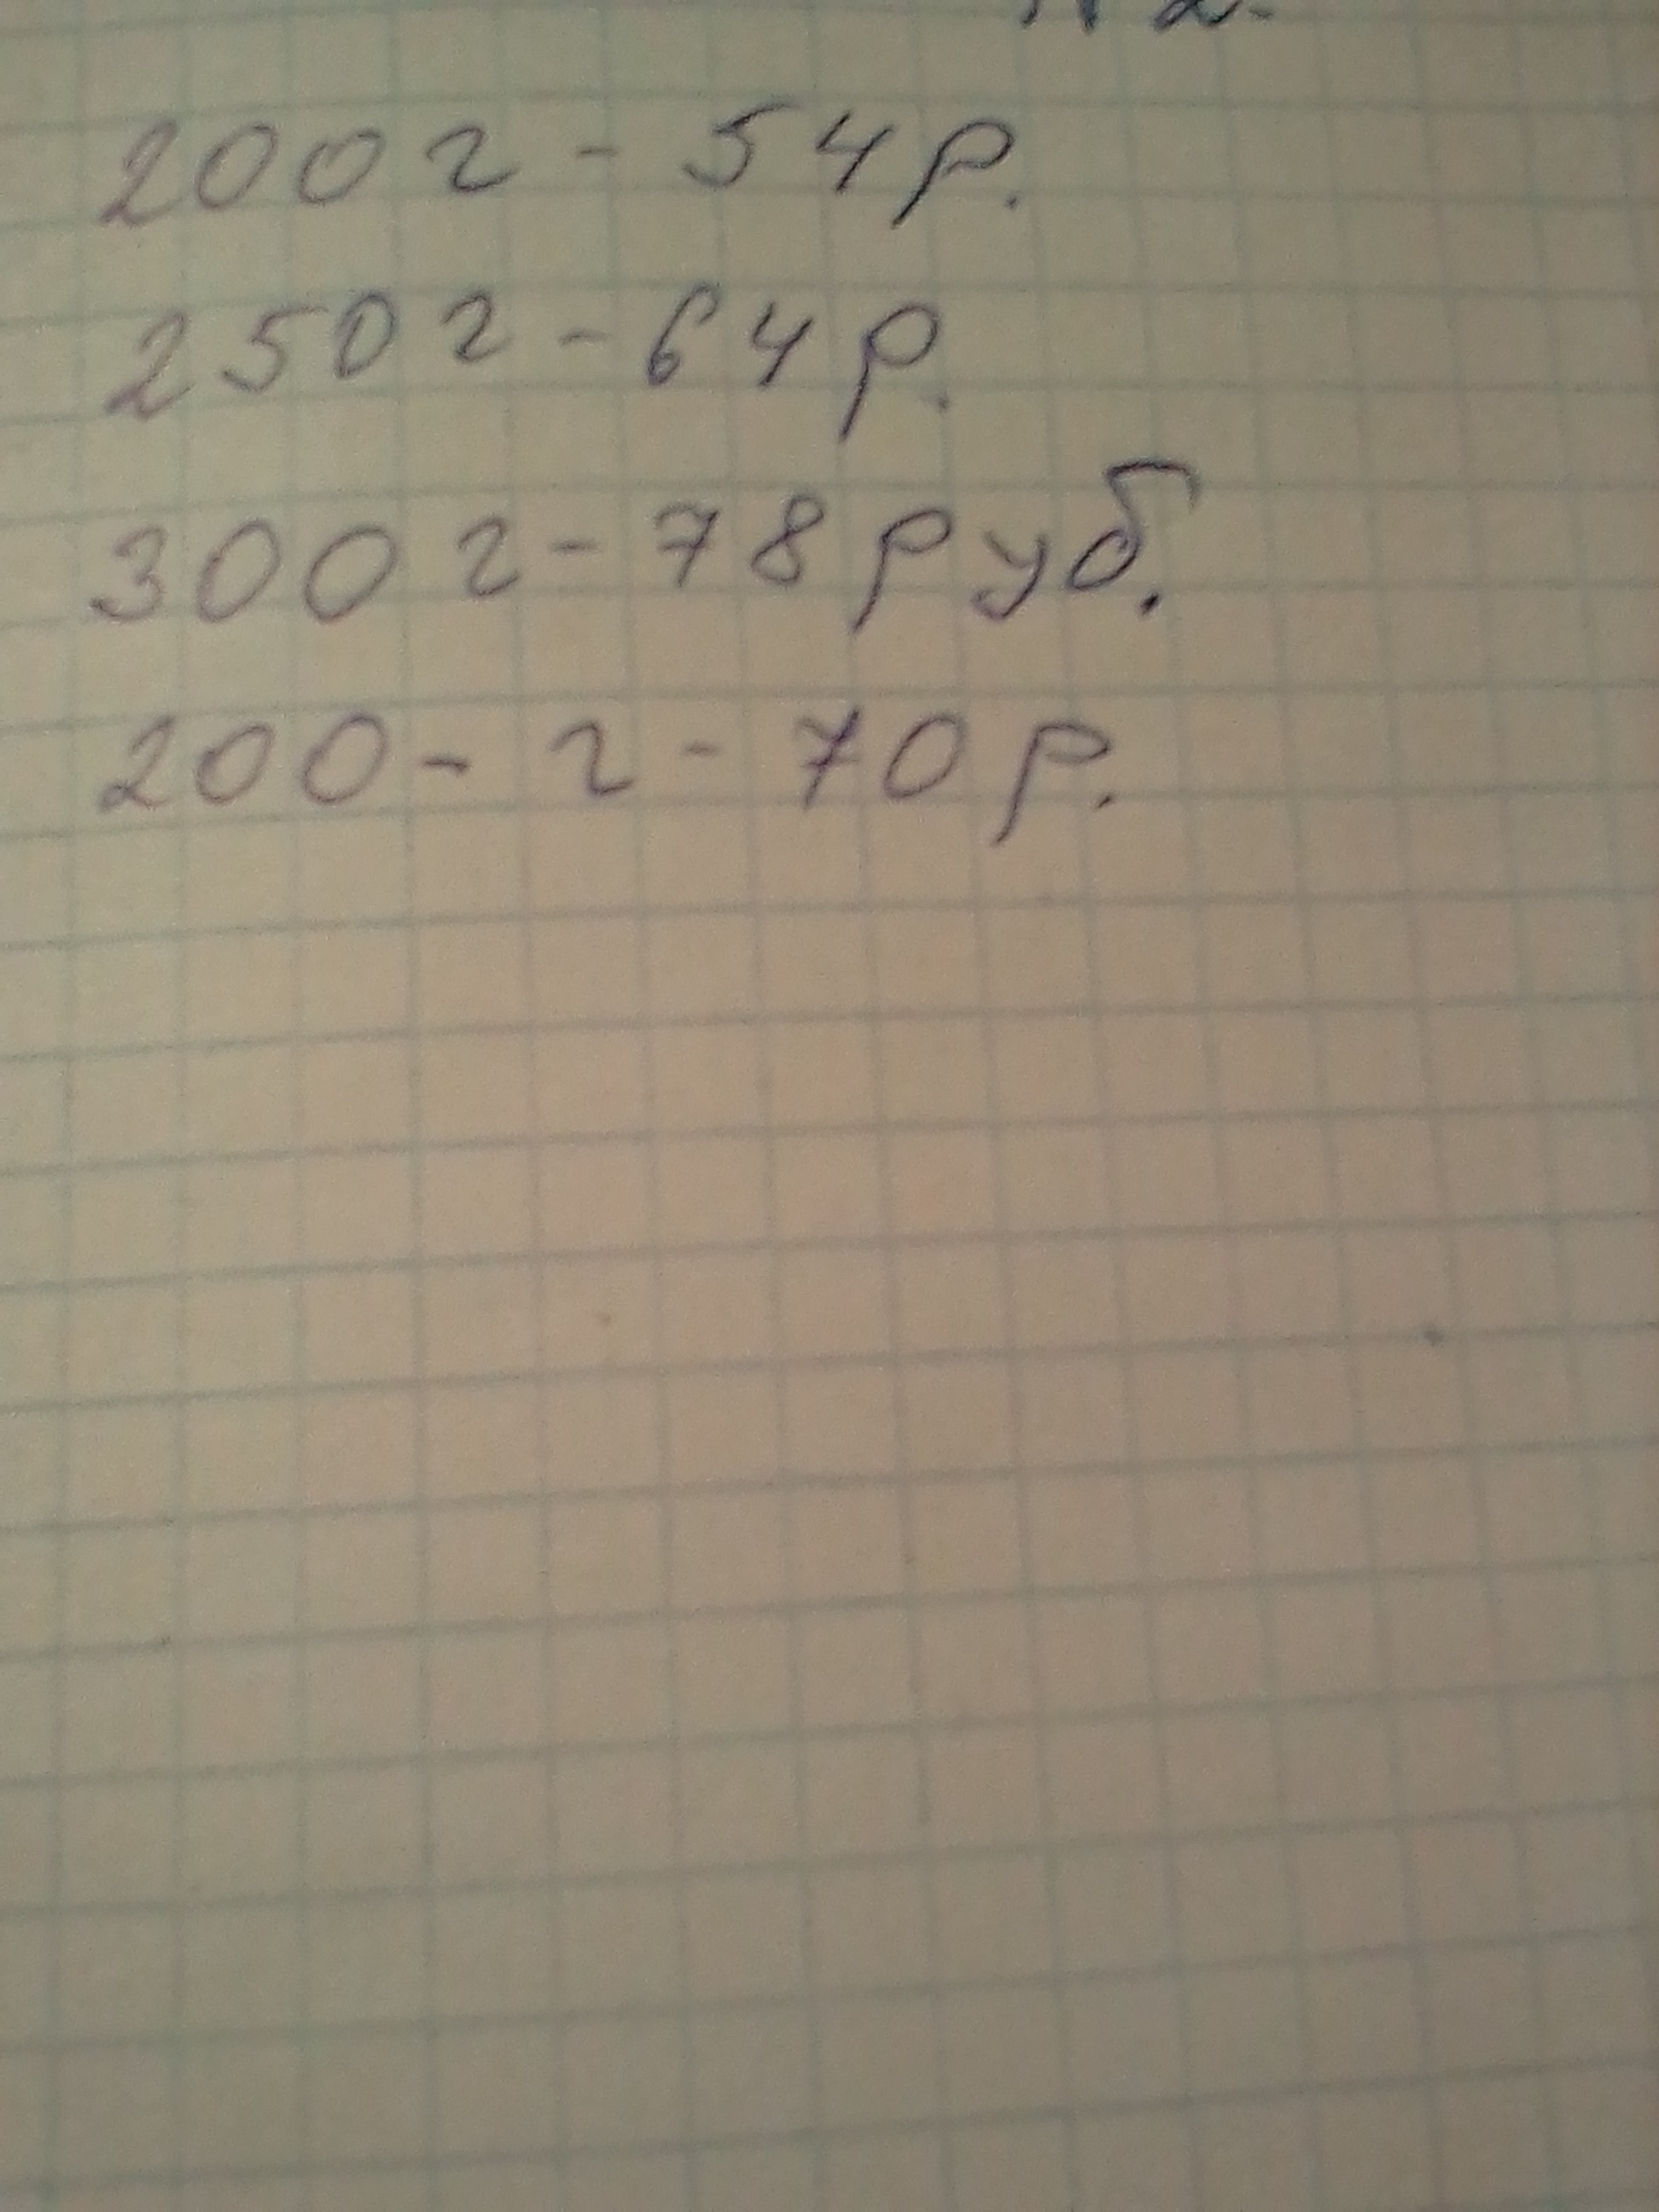 № 2.
200 г - 54 р.
250 г - 64 р.
300 г - 78 руб.
200 - г - 70 р.